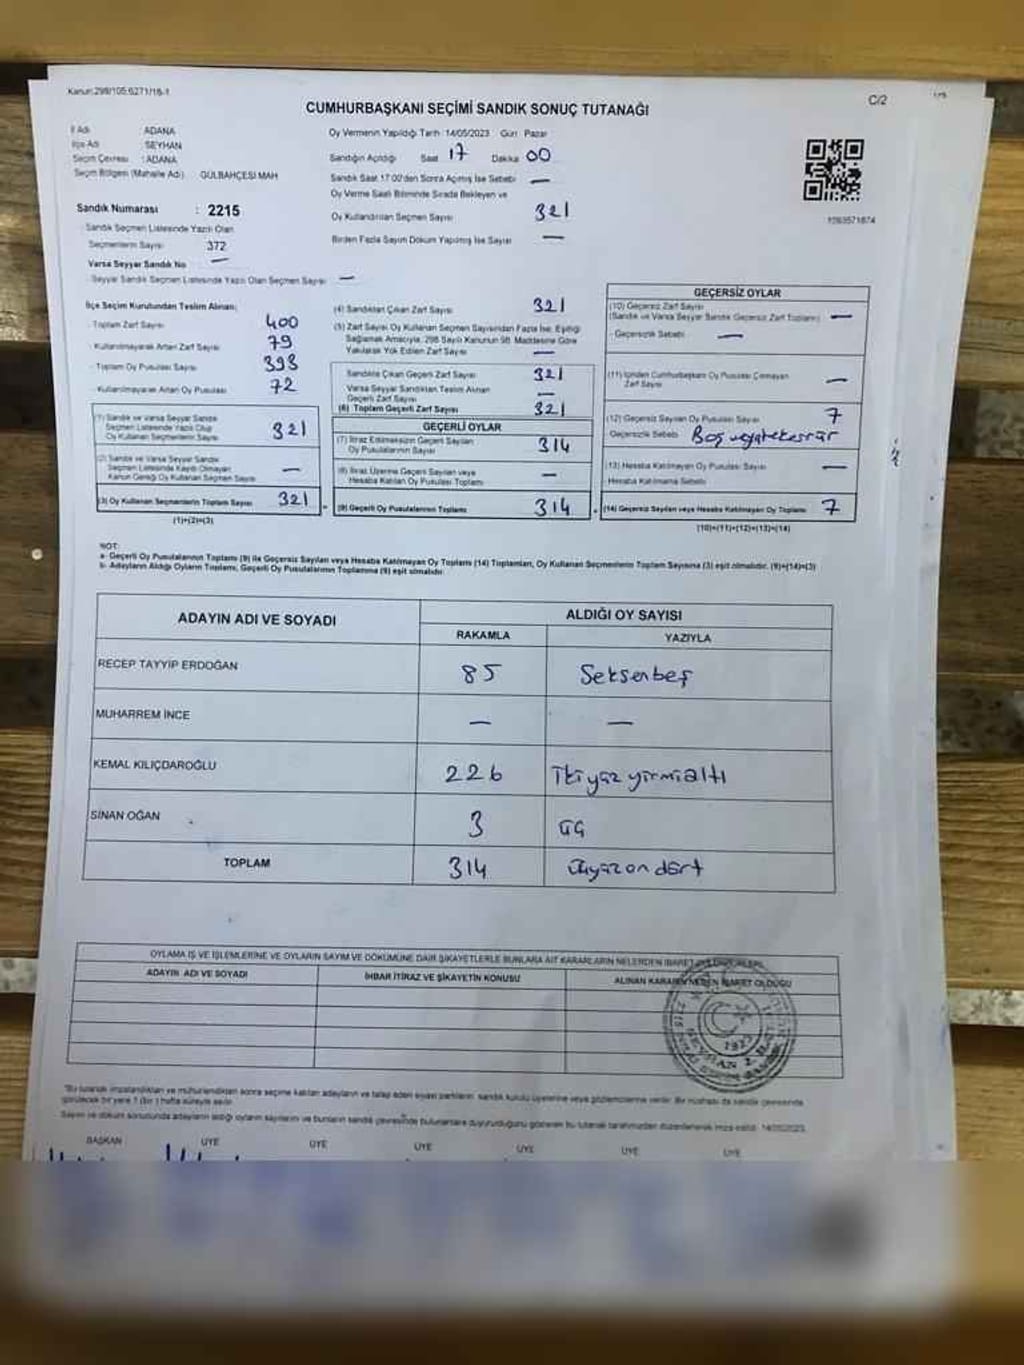 Kanun:298/105;6271/18-1
C/2
CUMHURBAŞKANI SEÇİMİ SANDIK SONUÇ TUTANAĞI
İl Adı : ADANA
İlçe Adı : SEYHAN
Seçim Çevresi : ADANA
Seçim Bölgesi (Mahalle Adı) GÜLBAHÇESİ MAH
Sandık Numarası : 2215
Sandık Seçmen Listesinde Yazılı Olan
Seçmenlerin Sayısı 372
Varsa Seyyar Sandık No —
Seyyar Sandık Seçmen Listesinde Yazılı Olan Seçmen Sayısı —
Oy Vermenin Yapıldığı Tarih : 14/05/2023 Gün : Pazar
Sandığın Açıldığı Saat 17 Dakika 00
Sandık Saat 17:00'den Sonra Açılmış İse Sebebi —
Oy Verme Saati Bitiminde Sırada Bekleyen ve
Oy Kullandırılan Seçmen Sayısı 321
Birden Fazla Sayım Döküm Yapılmış İse Sayısı —
1593571874
İlçe Seçim Kurulundan Teslim Alınan:
- Toplam Zarf Sayısı 400
- Kullanılmayarak Artan Zarf Sayısı 79
- Toplam Oy Pusulası Sayısı 393
- Kullanılmayarak Artan Oy Pusulası 72
(1) Sandık ve Varsa Seyyar Sandık
Seçmen Listesinde Yazılı Olup
Oy Kullanan Seçmenlerin Sayısı 321
(2) Sandık ve Varsa Seyyar Sandık
Seçmen Listesinde Kayıtlı Olmayan
Kanun Gereği Oy Kullanan Seçmen Sayısı —
(3) Oy Kullanan Seçmenlerin Toplam Sayısı 321
(1)+(2)=(3)
(4) Sandıktan Çıkan Zarf Sayısı 321
(5) Zarf Sayısı Oy Kullanan Seçmen Sayısından Fazla İse, Eşitliği
Sağlamak Amacıyla, 298 Sayılı Kanunun 98. Maddesine Göre
Yakılarak Yok Edilen Zarf Sayısı —
Sandıkta Çıkan Geçerli Zarf Sayısı 321
Varsa Seyyar Sandıktan Teslim Alınan
Geçerli Zarf Sayısı —
(6) Toplam Geçerli Zarf Sayısı 321
GEÇERLİ OYLAR
(7) İtiraz Edilmeksizin Geçerli Sayılan
Oy Pusulalarının Sayısı 314
(8) İtiraz Üzerine Geçerli Sayılan veya
Hesaba Katılan Oy Pusulası Toplamı —
(9) Geçerli Oy Pusulalarının Toplamı 314
GEÇERSİZ OYLAR
(10) Geçersiz Zarf Sayısı
(Sandık ve Varsa Seyyar Sandık Geçersiz Zarf Toplamı) —
- Geçersizlik Sebebi : —
(11) İçinden Cumhurbaşkanı Oy Pusulası Çıkmayan
Zarf Sayısı —
(12) Geçersiz Sayılan Oy Pusulası Sayısı 7
Geçersizlik Sebebi
(13) Hesaba Katılmayan Oy Pusulası Sayısı —
- Hesaba Katılmama Sebebi
(14) Geçersiz Sayılan veya Hesaba Katılmayan Oy Toplamı 7
(10)+(11)+(12)+(13)=(14)
NOT:
a- Geçerli Oy Pusulalarının Toplamı (9) ile Geçersiz Sayılan veya Hesaba Katılmayan Oy Toplamı (14) Toplamları, Oy Kullanan Seçmenlerin Toplam Sayısına (3) eşit olmalıdır. (9)+(14)=(3)
b- Adayların Aldığı Oyların Toplamı, Geçerli Oy Pusulalarının Toplamına (9) eşit olmalıdır.
ADAYIN ADI VE SOYADI ALDIĞI OY SAYISI
RAKAMLA YAZIYLA
RECEP TAYYİP ERDOĞAN 85 Seksenbeş
MUHARREM İNCE — —
KEMAL KILIÇDAROĞLU 226 İkiyüz yirmialtı
SİNAN OĞAN 3 üç
TOPLAM 314 üçyüz on dört
OYLAMA İŞ VE İŞLEMLERİNE VE OYLARIN SAYIM VE DÖKÜMÜNE DAİR ŞİKAYETLERLE BUNLARA AİT KARARLARIN NELERDEN İBARET
ADAYIN ADI VE SOYADI İHBAR İTİRAZ VE ŞİKAYETİN KONUSU ALINAN KARARIN NEDEN İBARET OLDUĞU
"Bu tutanak imzalandıktan ve mühürlendikten sonra seçime katılan adayların ve talep eden siyasi partilerin sandık kurulu üyelerine veya gözlemcilerine verilir. Bir nüshası da sandık çevresinde
görülecek bir yere 1 (bir) hafta süreyle asılır.
Sayım ve döküm sonucunda adayların aldığı oyların sayılarını ve bunların sandık çevresinde bulunanlara duyurulduğunu gösteren bu tutanak tarafımızdan düzenlenerek imza edildi. 14/05/2023
BAŞKAN ÜYE ÜYE ÜYE ÜYE ÜYE ÜYE